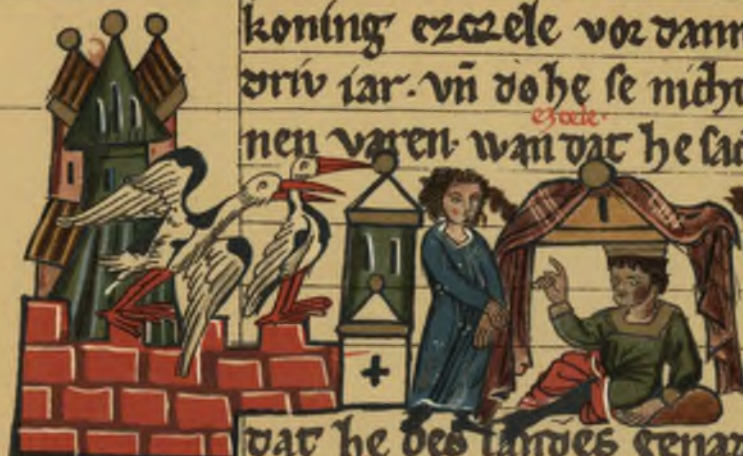 koning eczele vor dann
driv iar. vn̄ do he se nicht
ezcele.
nen varen. wan dat he sac
dat he des landes genaz